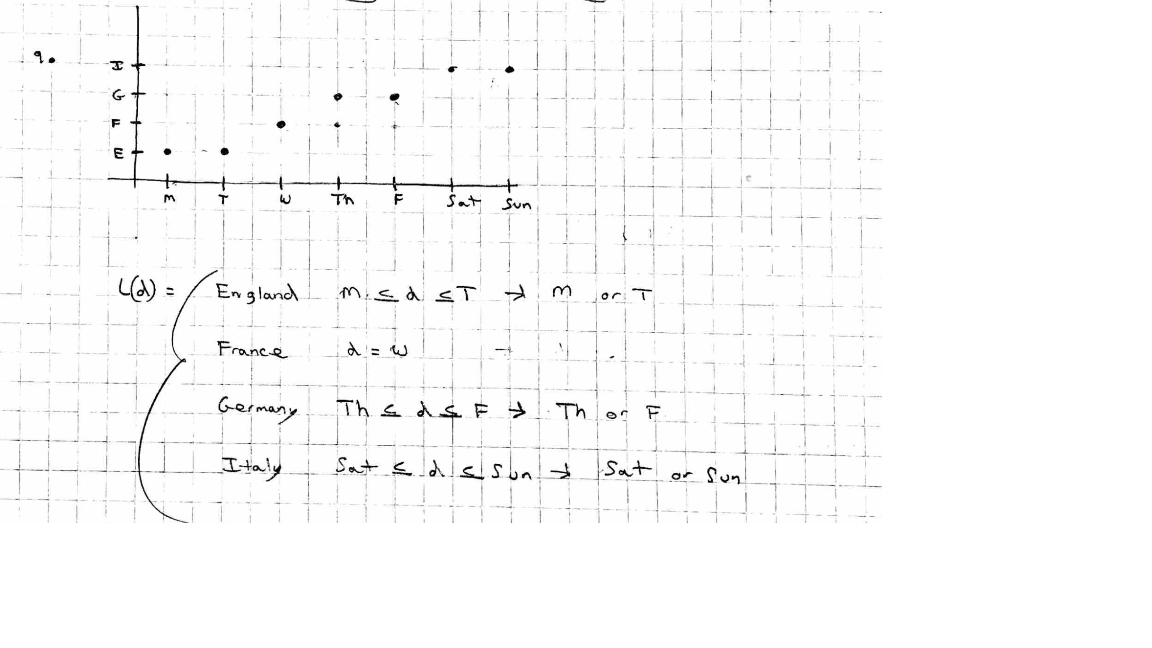 9.
I
G
F
E
M T W Th F Sat Sun
L(d) =
England M ≤ d ≤ T → M or T
France d = W →
Germany Th ≤ d ≤ F → Th or F
Italy Sat ≤ d ≤ Sun → Sat or Sun